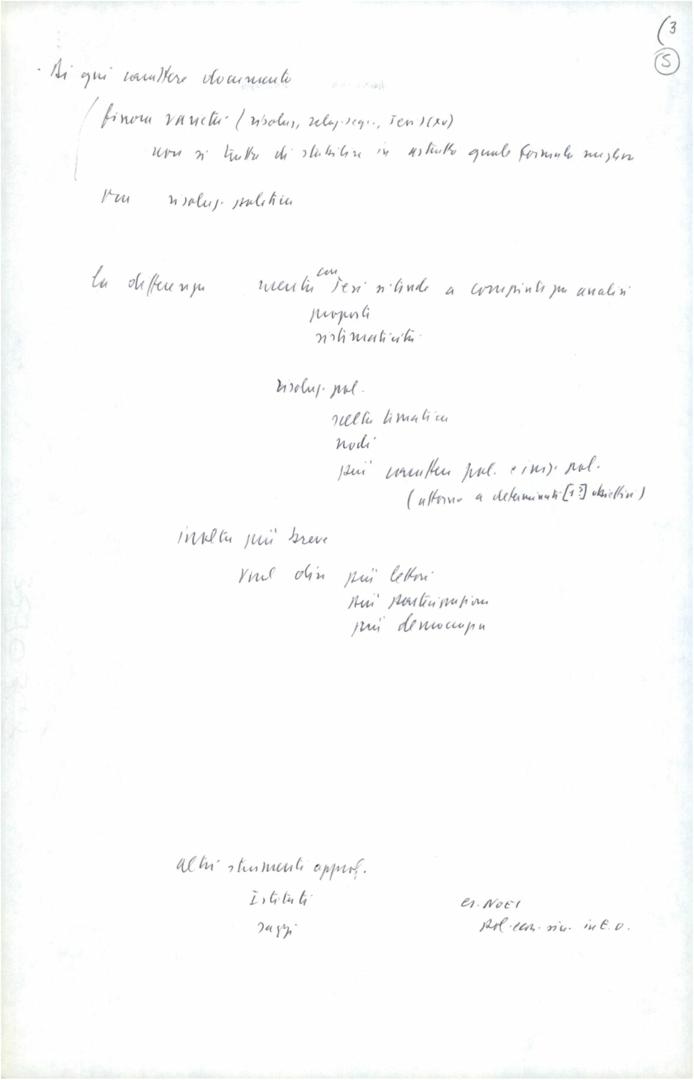 (3
5
· Di qui carattere documento
finora varietà (risoluz., relaz. segr., Tesi s(xv)
non si tratta di stabilire in astratto quale formula miglior
risoluz. politica
la differenza
mentre con Tesi si tende a compiutezza analisi
proposti
sistematicità
risoluz. pol.
scelta tematica
nodi
più carattere pol. e iniz. pol.
(attorno a determinati [13] obiettivi)
inoltre più breve
vuol dire più lettori
più partecipazione
più democrazia
altri strumenti approf.
Istituti
saggi
es. NOEI
pol. econ. sin. in E.O.